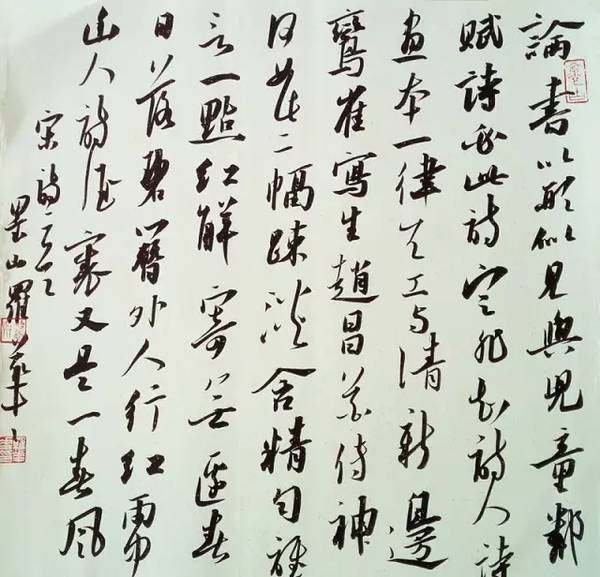 論書以形似見與兒童鄰
賦詩必此詩定非知詩人詩
畫本一律天工与清新邊
鸞雀寫生趙昌花传神
何如此二幅踈淡含精匀誰
言一點紅解寄無邊春
日落碧簪外人行紅雨中
幽人詩酒裏又是一春風
宋詩二首
山羅